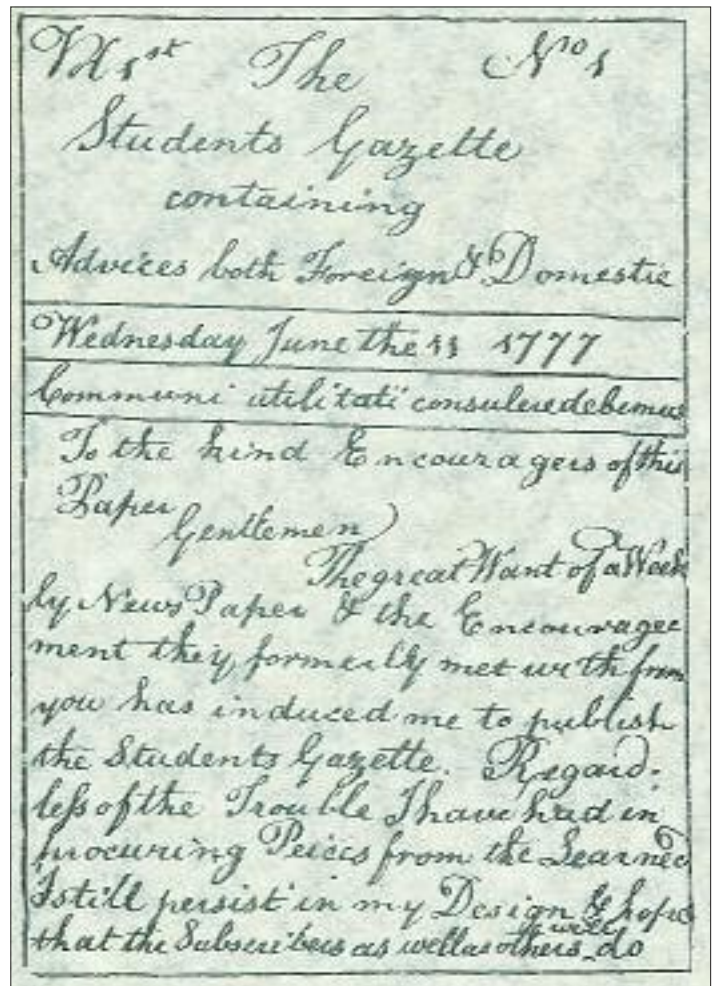 Vol 1st The No 1
Students Gazette
containing
Advices both Foreign & Domestic
Wednesday June the 11 1777
Communi utilitati consulere debemus
To the kind Encouragers of this
Paper
Gentlemen
The great Want of a Week
ly News Paper & the Encourage
ment they formerly met with from
you has induced me to publish
the Students Gazette. Regard-
less of the Trouble I have had in
procuring Peices from the Learned
I still persist in my Design & hope
that the Subscribers as well as others will do